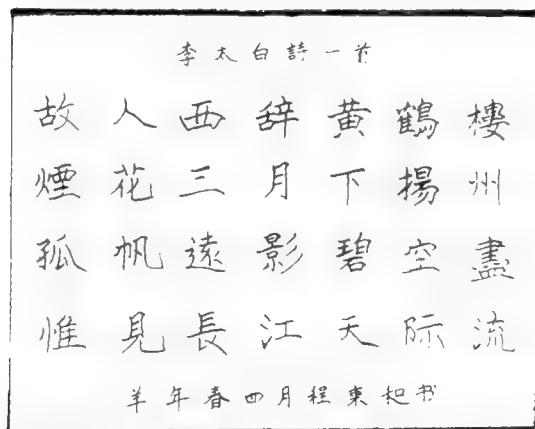 李太白詩一首
故人西辞黄鶴樓
煙花三月下揚州
孤帆遠影碧空盡
惟見長江天际流
羊年春四月程東旭书